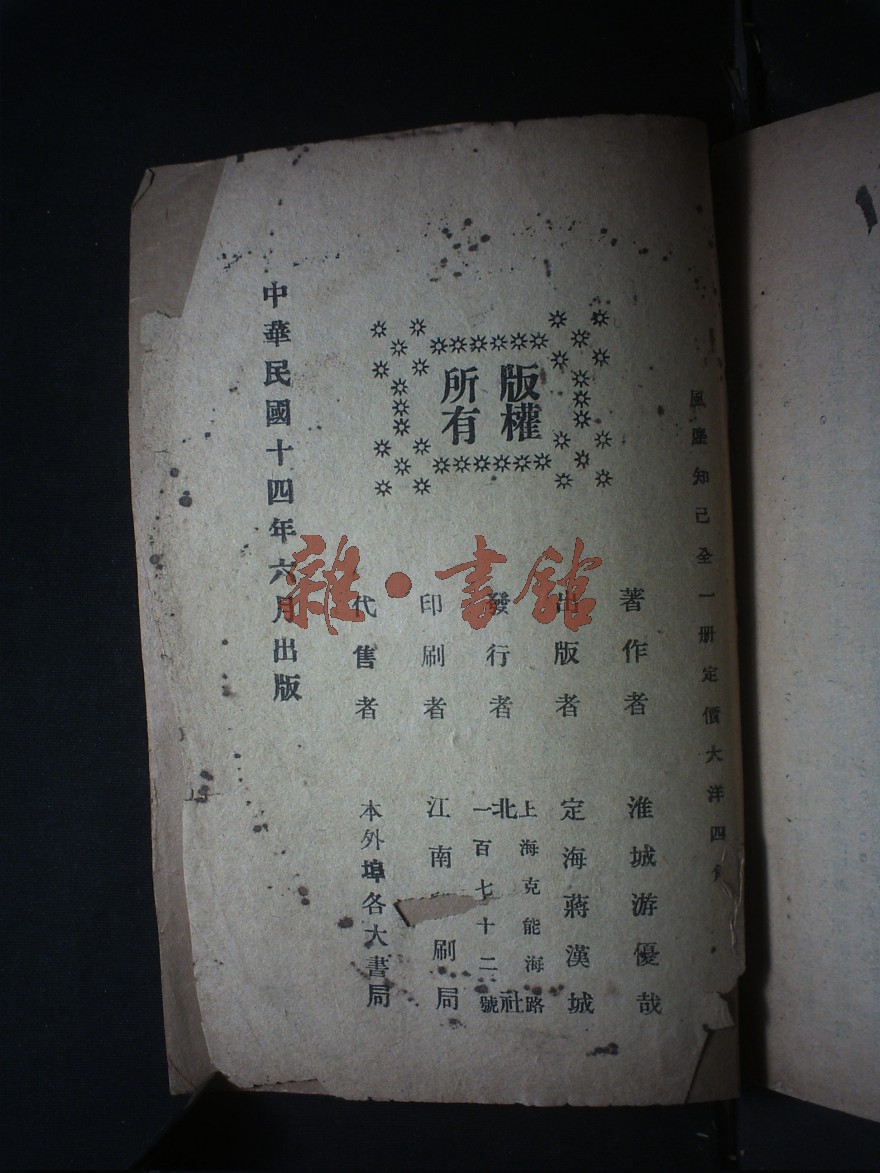 風塵知己全一册定價大洋四
版權
所有
著作者 淮城游優哉
出版者 定海蔣漢城
發行者 上海克能海路一百七十二號 北社
印刷者 江南 刷局
代售者 本外埠各大書局
中華民國十四年六月出版
雜·書館